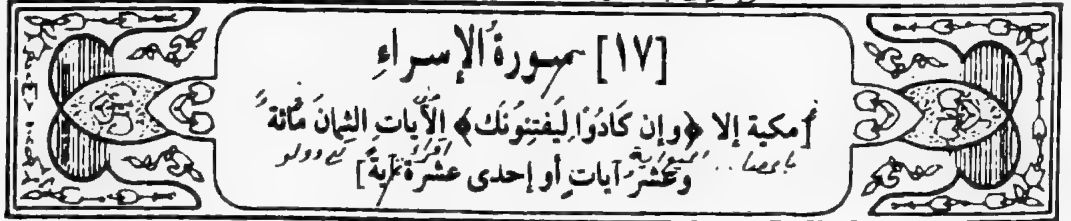 [١٧] سورة الإسراء
[مكية إلا ﴿وإن كَادُوْا لَيَفتِنُونَك﴾ الآيات الثمان مائة
وعَشْرُ آيات أو إحدى عشرة آية]